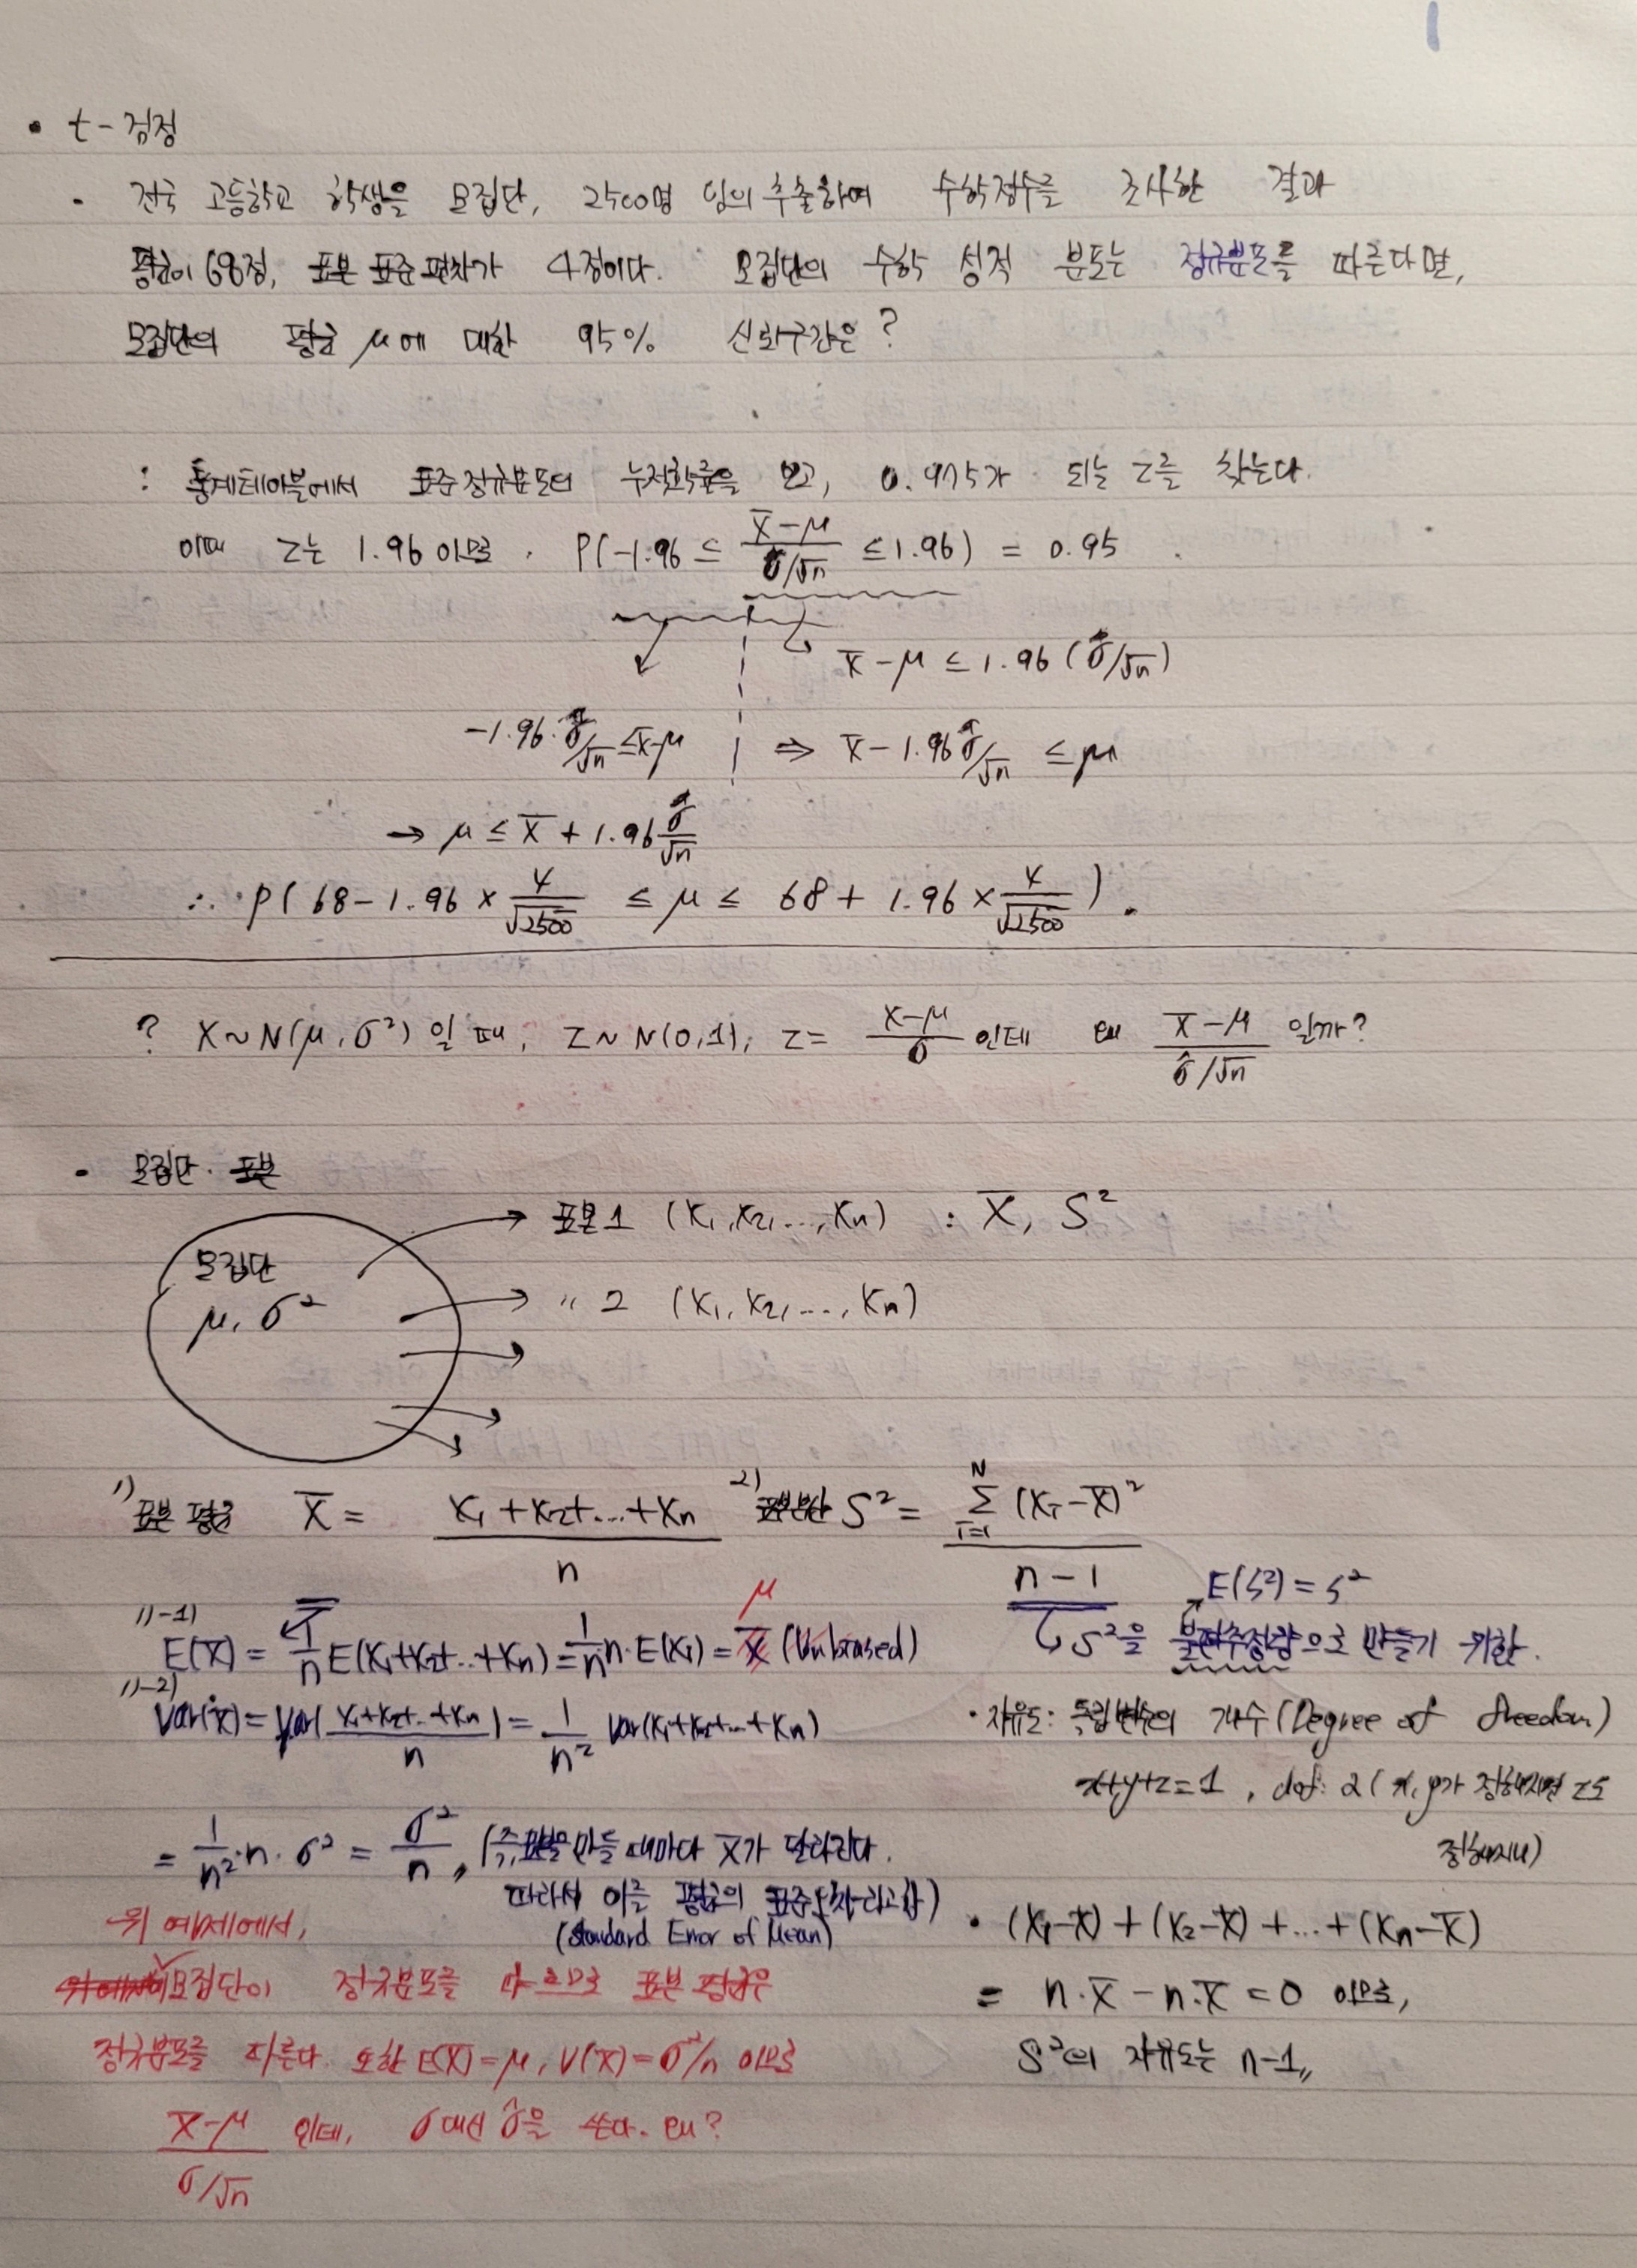 1
• t-검정
· 전국 고등학교 학생을 모집단, 2500명 임의추출하여 수학점수를 조사한 결과
평균이 68점, 표본 표준편차가 4점이다. 모집단의 수학 성적 분포는 정규분포를 따른다면,
모집단의 평균 μ에 대한 95% 신뢰구간은?
: 통계테이블에서 표준정규분포의 누적확률을 보고, 0.975가 되는 z를 찾는다.
이때 z는 1.96이므로, P(-1.96 ≤ (x̄-μ)/(σ̂/√n) ≤ 1.96) = 0.95
x̄-μ ≤ 1.96(σ̂/√n)
-1.96·σ̂/√n ≤ x̄-μ ⇒ x̄-1.96σ̂/√n ≤ μ
→ μ ≤ x̄+1.96 σ̂/√n
∴ P(68-1.96×4/√2500 ≤ μ ≤ 68+1.96×4/√2500).
? X~N(μ,σ²)일 때, Z~N(0,1), Z= (X-μ)/σ 인데 왜 (x̄-μ)/(σ̂/√n) 일까?
• 모집단·표본
표본1 (X₁,X₂,...,Xn) : X̄, S²
모집단
μ, σ²
〃 2 (X₁,X₂,...,Xn)
1) 표본 평균 X̄ = (X₁+X₂+...+Xn)/n
2) 표본분산 S² = Σ(i=1, N)(Xi-X̄)²/(n-1)
E(S²)=S²
↳ S²을 불편추정량으로 만들기 위함.
1)-1)
E(X̄) = 1/n E(X₁+X₂+..+Xn) = 1/n n·E(X₁) = μ (Unbiased)
1)-2)
Var(X̄) = Var((X₁+X₂+..+Xn)/n) = 1/n² Var(X₁+X₂+...+Xn)
= 1/n²·n·σ² = σ²/n, (즉, 표본을 만들 때마다 X̄가 달라진다.
따라서 이를 평균의 표준오차라고함)
(Standard Error of Mean)
· 자유도: 독립변수의 개수 (Degree of freedom)
x+y+z=1, dof: 2 (x,y가 정해지면 z도
정해지니)
• (X₁-X̄)+(X₂-X̄)+...+(Xn-X̄)
= n·X̄-n·X̄=0 이므로,
S²의 자유도는 n-1〃
위 예제에서,
모집단이 정규분포를 따르므로 표본 평균은
정규분포를 따른다. 또한 E(X̄)=μ, V(X̄)=σ²/n 이므로
(X̄-μ)/(σ/√n) 인데, σ대신 σ̂을 쓴다. 왜?